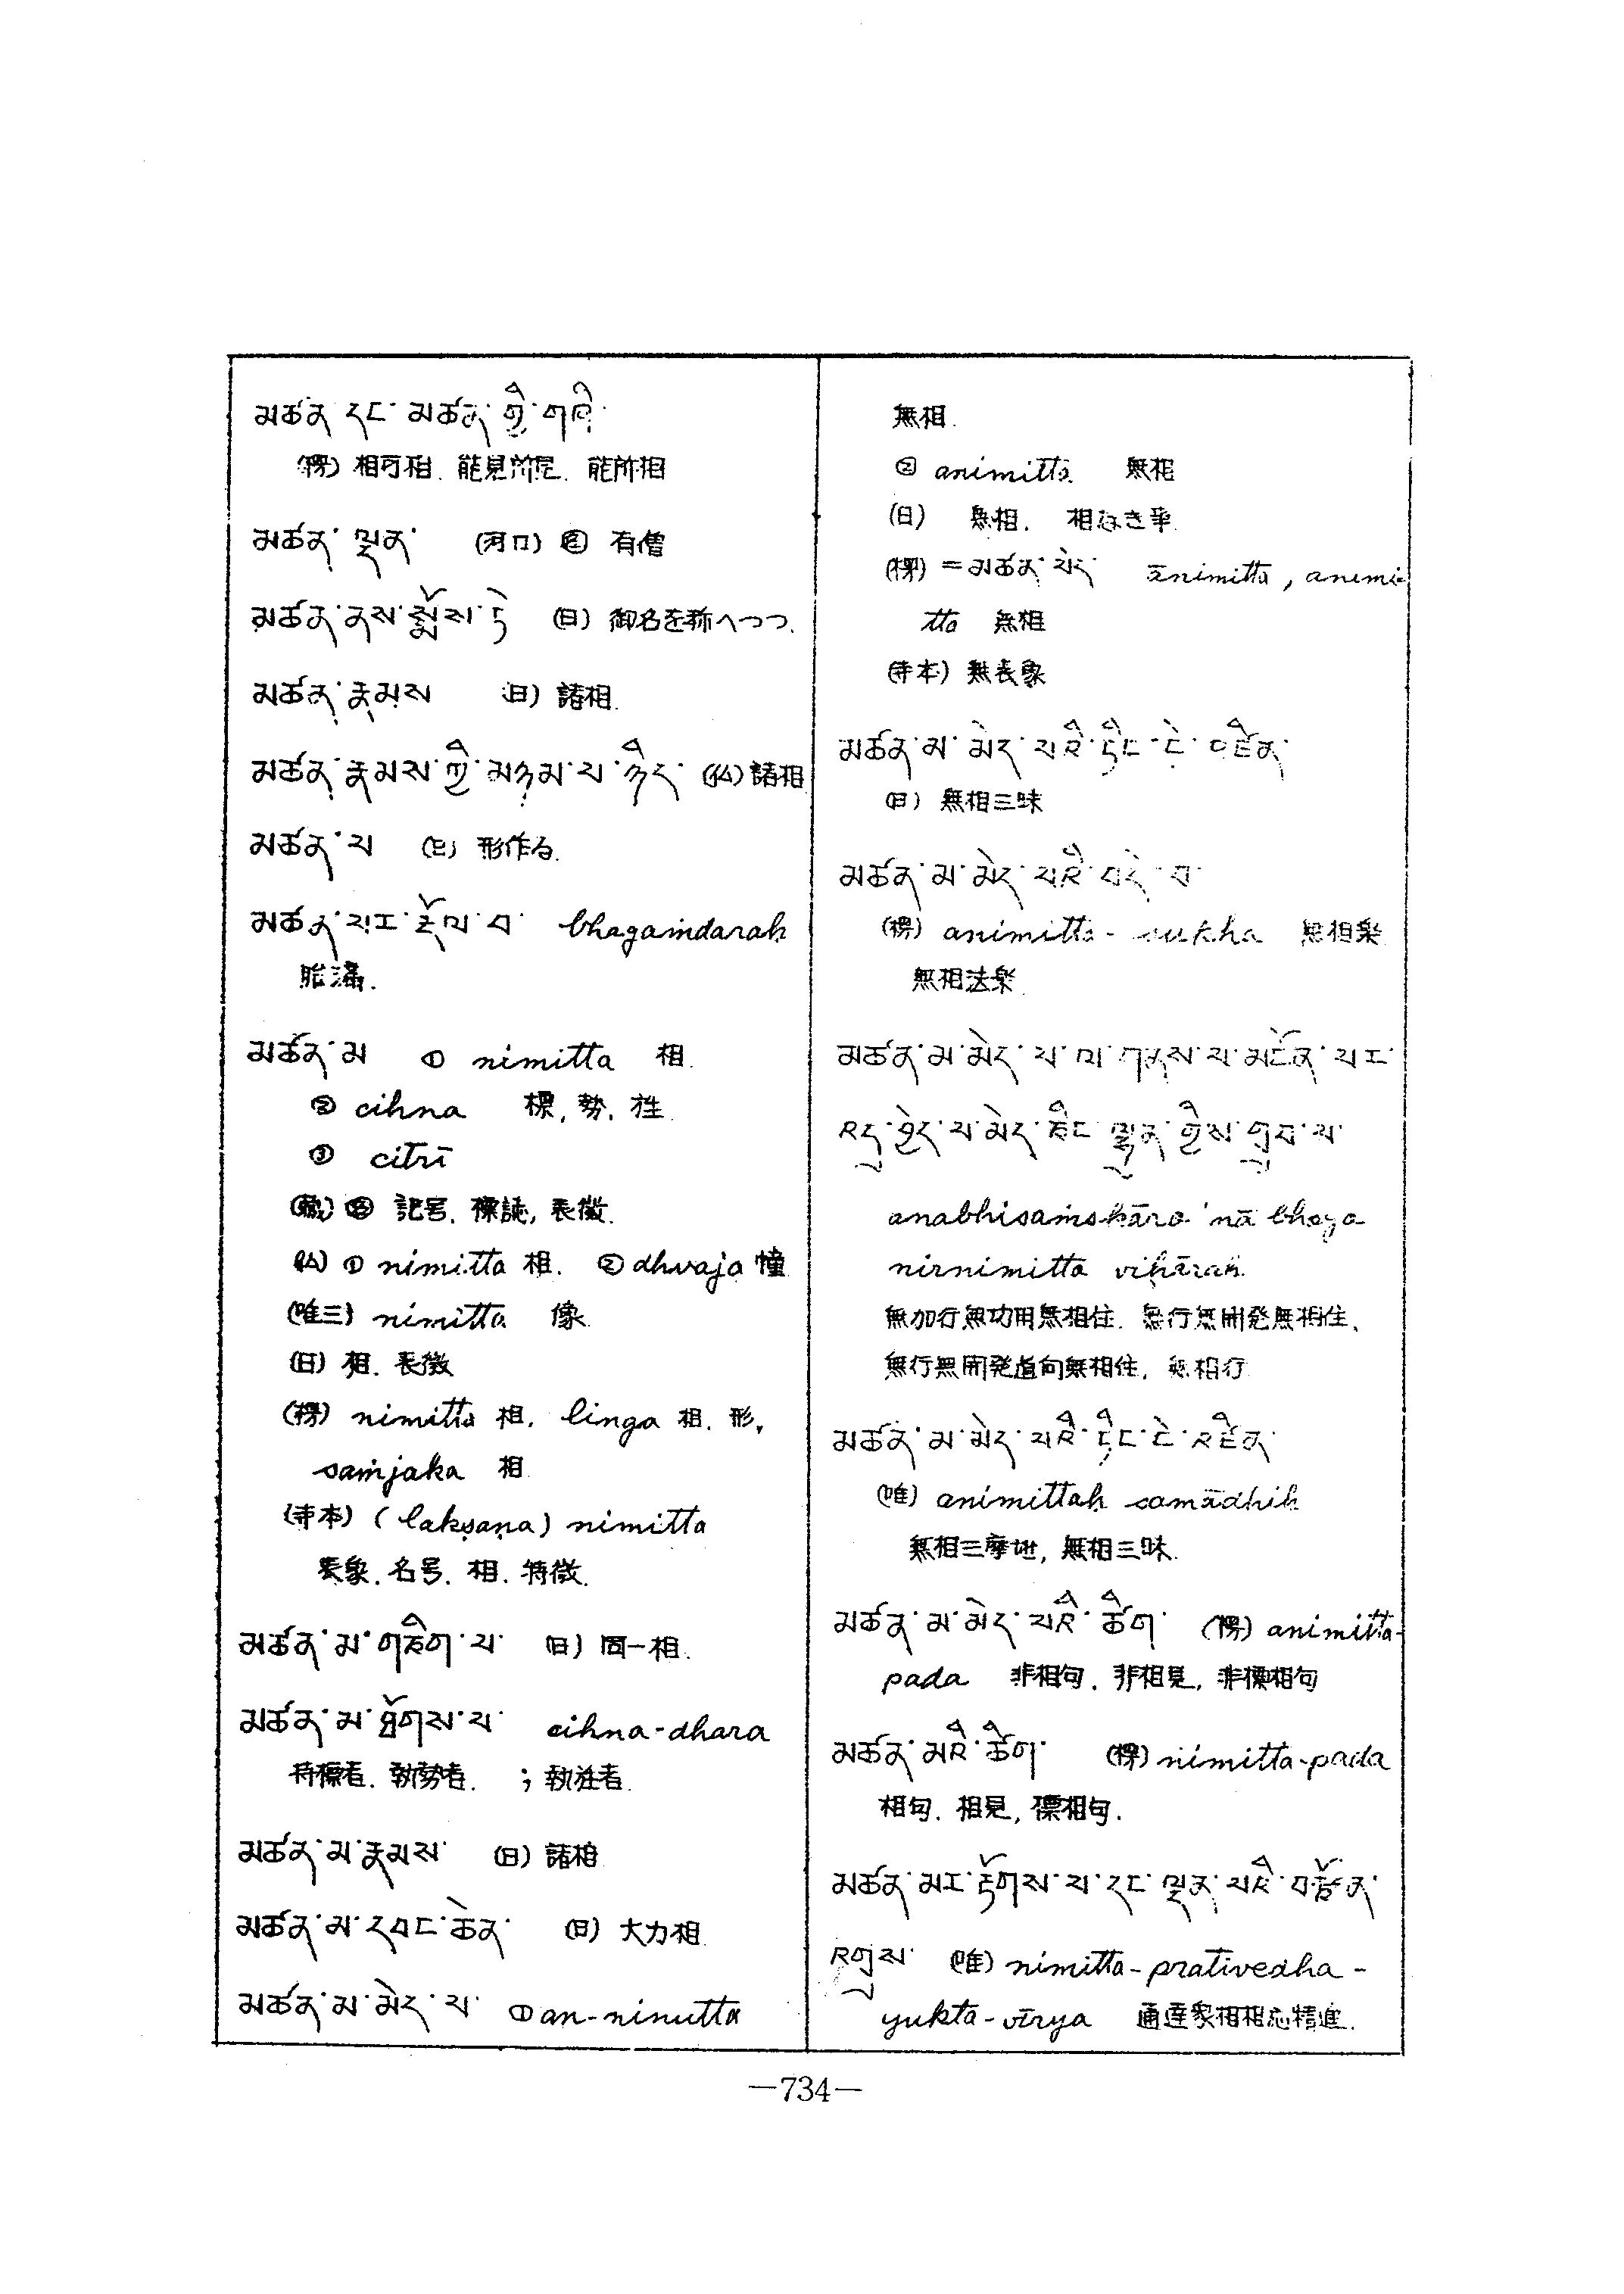 མཚན་དང་མཚན་གྱི་གཞི་
(楞) 相可相. 能見所見. 能所相
མཚན་ལྡན་ (河口) 有僧
མཚན་ནས་སྨོས་ཏེ (日) 御名を称へつつ.
མཚན་རྣམས (日) 諸相.
མཚན་རྣམས་ཀྱི་མཉམ་པ་ཉིད་ (仏) 諸相
མཚན་པ (日) 形作る.
མཚན་པར་རྡོལ་བ་ bhagaṁdaraḥ
མཚན་མ ① nimitta 相.
② cihna 標, 勢, 性.
③ citrī
(蔵) 記号. 標識, 表徴.
(仏) ① nimitta 相. ② dhvaja 幢
(唯三) nimitta 像.
(日) 相. 表徴
(楞) nimitta 相. linga 相. 形,
saṁjaka 相
(寺本) (lakṣaṇa) nimitta
表象. 名号. 相. 特徴.
མཚན་མ་གཅིག་པ་ (日) 同一相.
མཚན་མ་ཐོགས་པ་ cihna-dhara
持標者. 執勢者. ; 執性者.
མཚན་མ་རྣམས་ (日) 諸相
མཚན་མ་དབང་ཆེན་ (日) 大力相.
མཚན་མ་མེད་པ་ ① an-nimitta
無相.
② animitta 無相
(日) 無相. 相なき事
(楞) =མཚན་མེད་ ānimitta, animi-
tta 無相
(寺本) 無表象
མཚན་མ་མེད་པའི་ཏིང་ངེ་འཛིན་
(日) 無相三昧
མཚན་མ་མེད་པའི་བདེ་བ་
(楞) animitta-sukha 無相楽
無相法楽
མཚན་མ་མེད་པ་ལ་གནས་པ་མངོན་པར་
འདུ་བྱེད་པ་མེད་ཅིང་ལྷུན་གྱིས་གྲུབ་པ་
anabhisaṁskāra 'nā bhoga
nirnimitta vihāraḥ
無加行無功用無相住. 無行無開発無相住、
無行無開発道向無相住, 無相行
མཚན་མ་མེད་པའི་ཏིང་ངེ་འཛིན་
(唯) animittaḥ samādhiḥ
無相三摩地, 無相三昧.
མཚན་མ་མེད་པའི་ཚིག་ (楞) animitta-
pada 非相句. 非相見, 非標相句
མཚན་མའི་ཚིག་ (楞) nimitta-pada
相句. 相見, 標相句.
མཚན་མར་རྟོགས་པ་དང་ལྡན་པའི་བརྩོན་
འགྲུས་ (唯) nimitta-prativedha-
yukta-vīrya
—734—